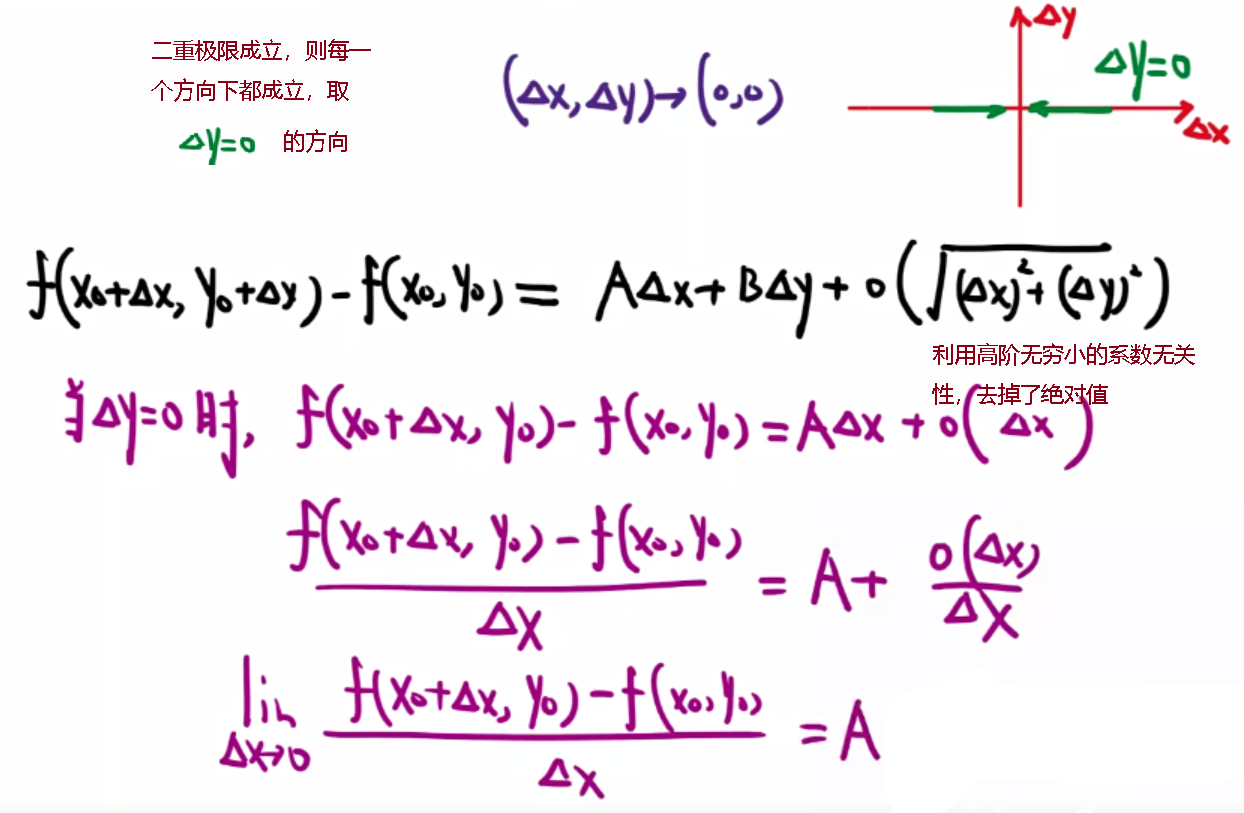 二重极限成立，则每一
个方向下都成立，取
△y=0 的方向
(△x, △y)→(0,0)
△y
△y=0
△x
f(x₀+△x, y₀+△y)-f(x₀, y₀) = A△x+B△y+o(√(△x)²+(△y)²)
利用高阶无穷小的系数无关
性，去掉了绝对值
当△y=0时, f(x₀+△x, y₀)-f(x₀, y₀)=A△x+o(△x)
f(x₀+△x, y₀)-f(x₀, y₀)
= A+ o(△x)
△x
△x
lim f(x₀+△x, y₀)-f(x₀, y₀)
= A
△x→0
△x